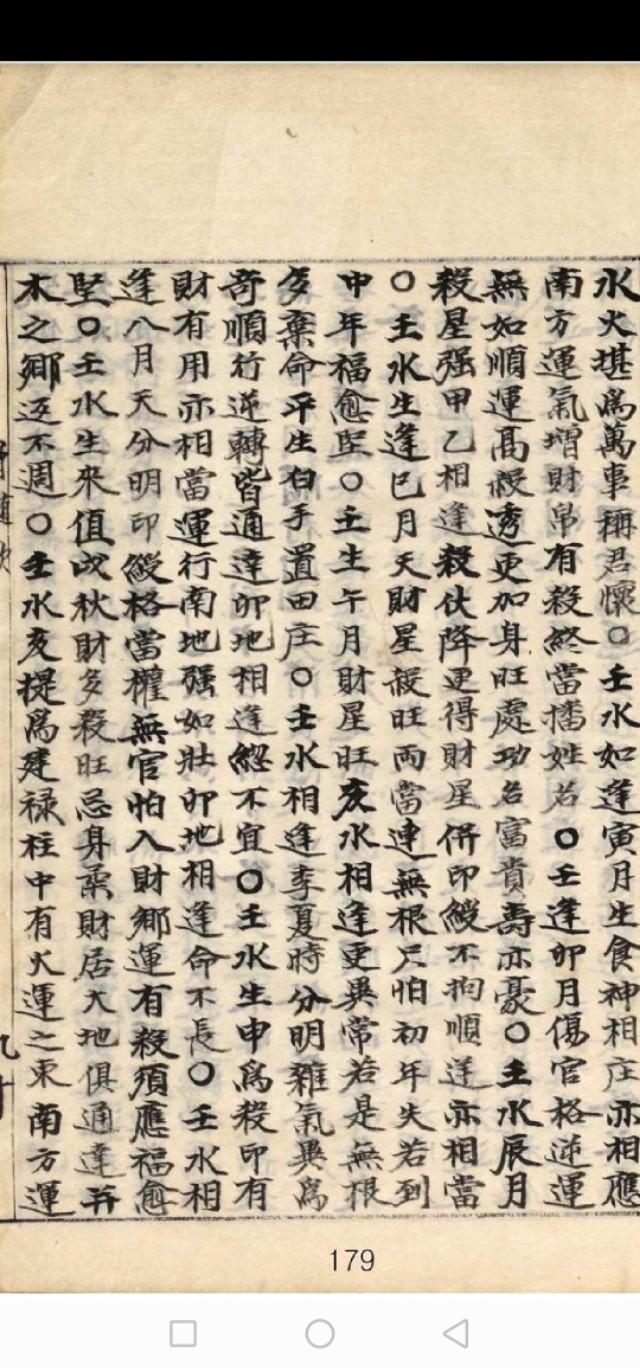 水火堪為萬事稱君懷〇壬水如逢寅月生食神相庄亦相應
南方運氣增財帛有殺終當播姓名〇壬逢卯月傷官格逆運
無如順運高殺透更加身旺處功名富貴壽亦豪〇壬水辰月
殺星强甲乙相逢殺伏降更得財星併印綬不拘順逆亦相當
〇壬水生逢巳月天財星殺旺両當連無根只怕初年失若到
申年福愈堅〇壬生午月財星旺亥水相逢更異常若是無根
多棄命平生白手置田庄〇壬水相逢季夏時分明雜氣異為
奇順行逆轉皆通達卯地相逢緫不宜〇壬水生申為殺印有
財有用亦相當運行南地强如壯卯地相逢命不長〇壬水相
逢八月天分明印綬格當權無官怕入財鄉運有殺須應福愈
堅〇壬水生來值戌秋財多殺旺忌身柔財居大地俱通達井
木之鄉返不週〇壬水亥提為建禄柱中有火運之東南方運
179